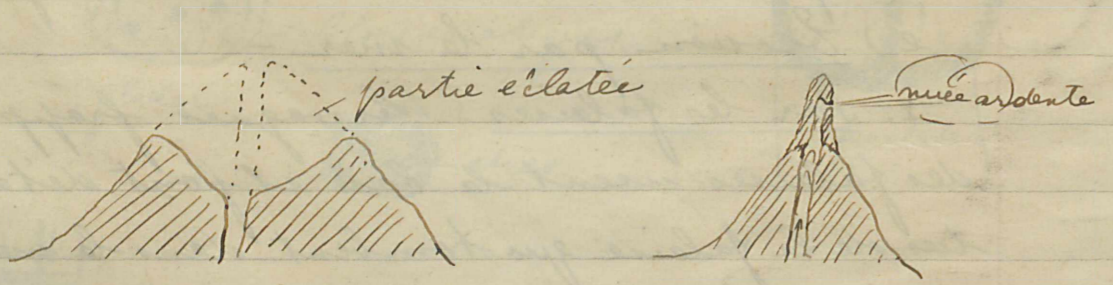 partie éclatée
nuée ardente